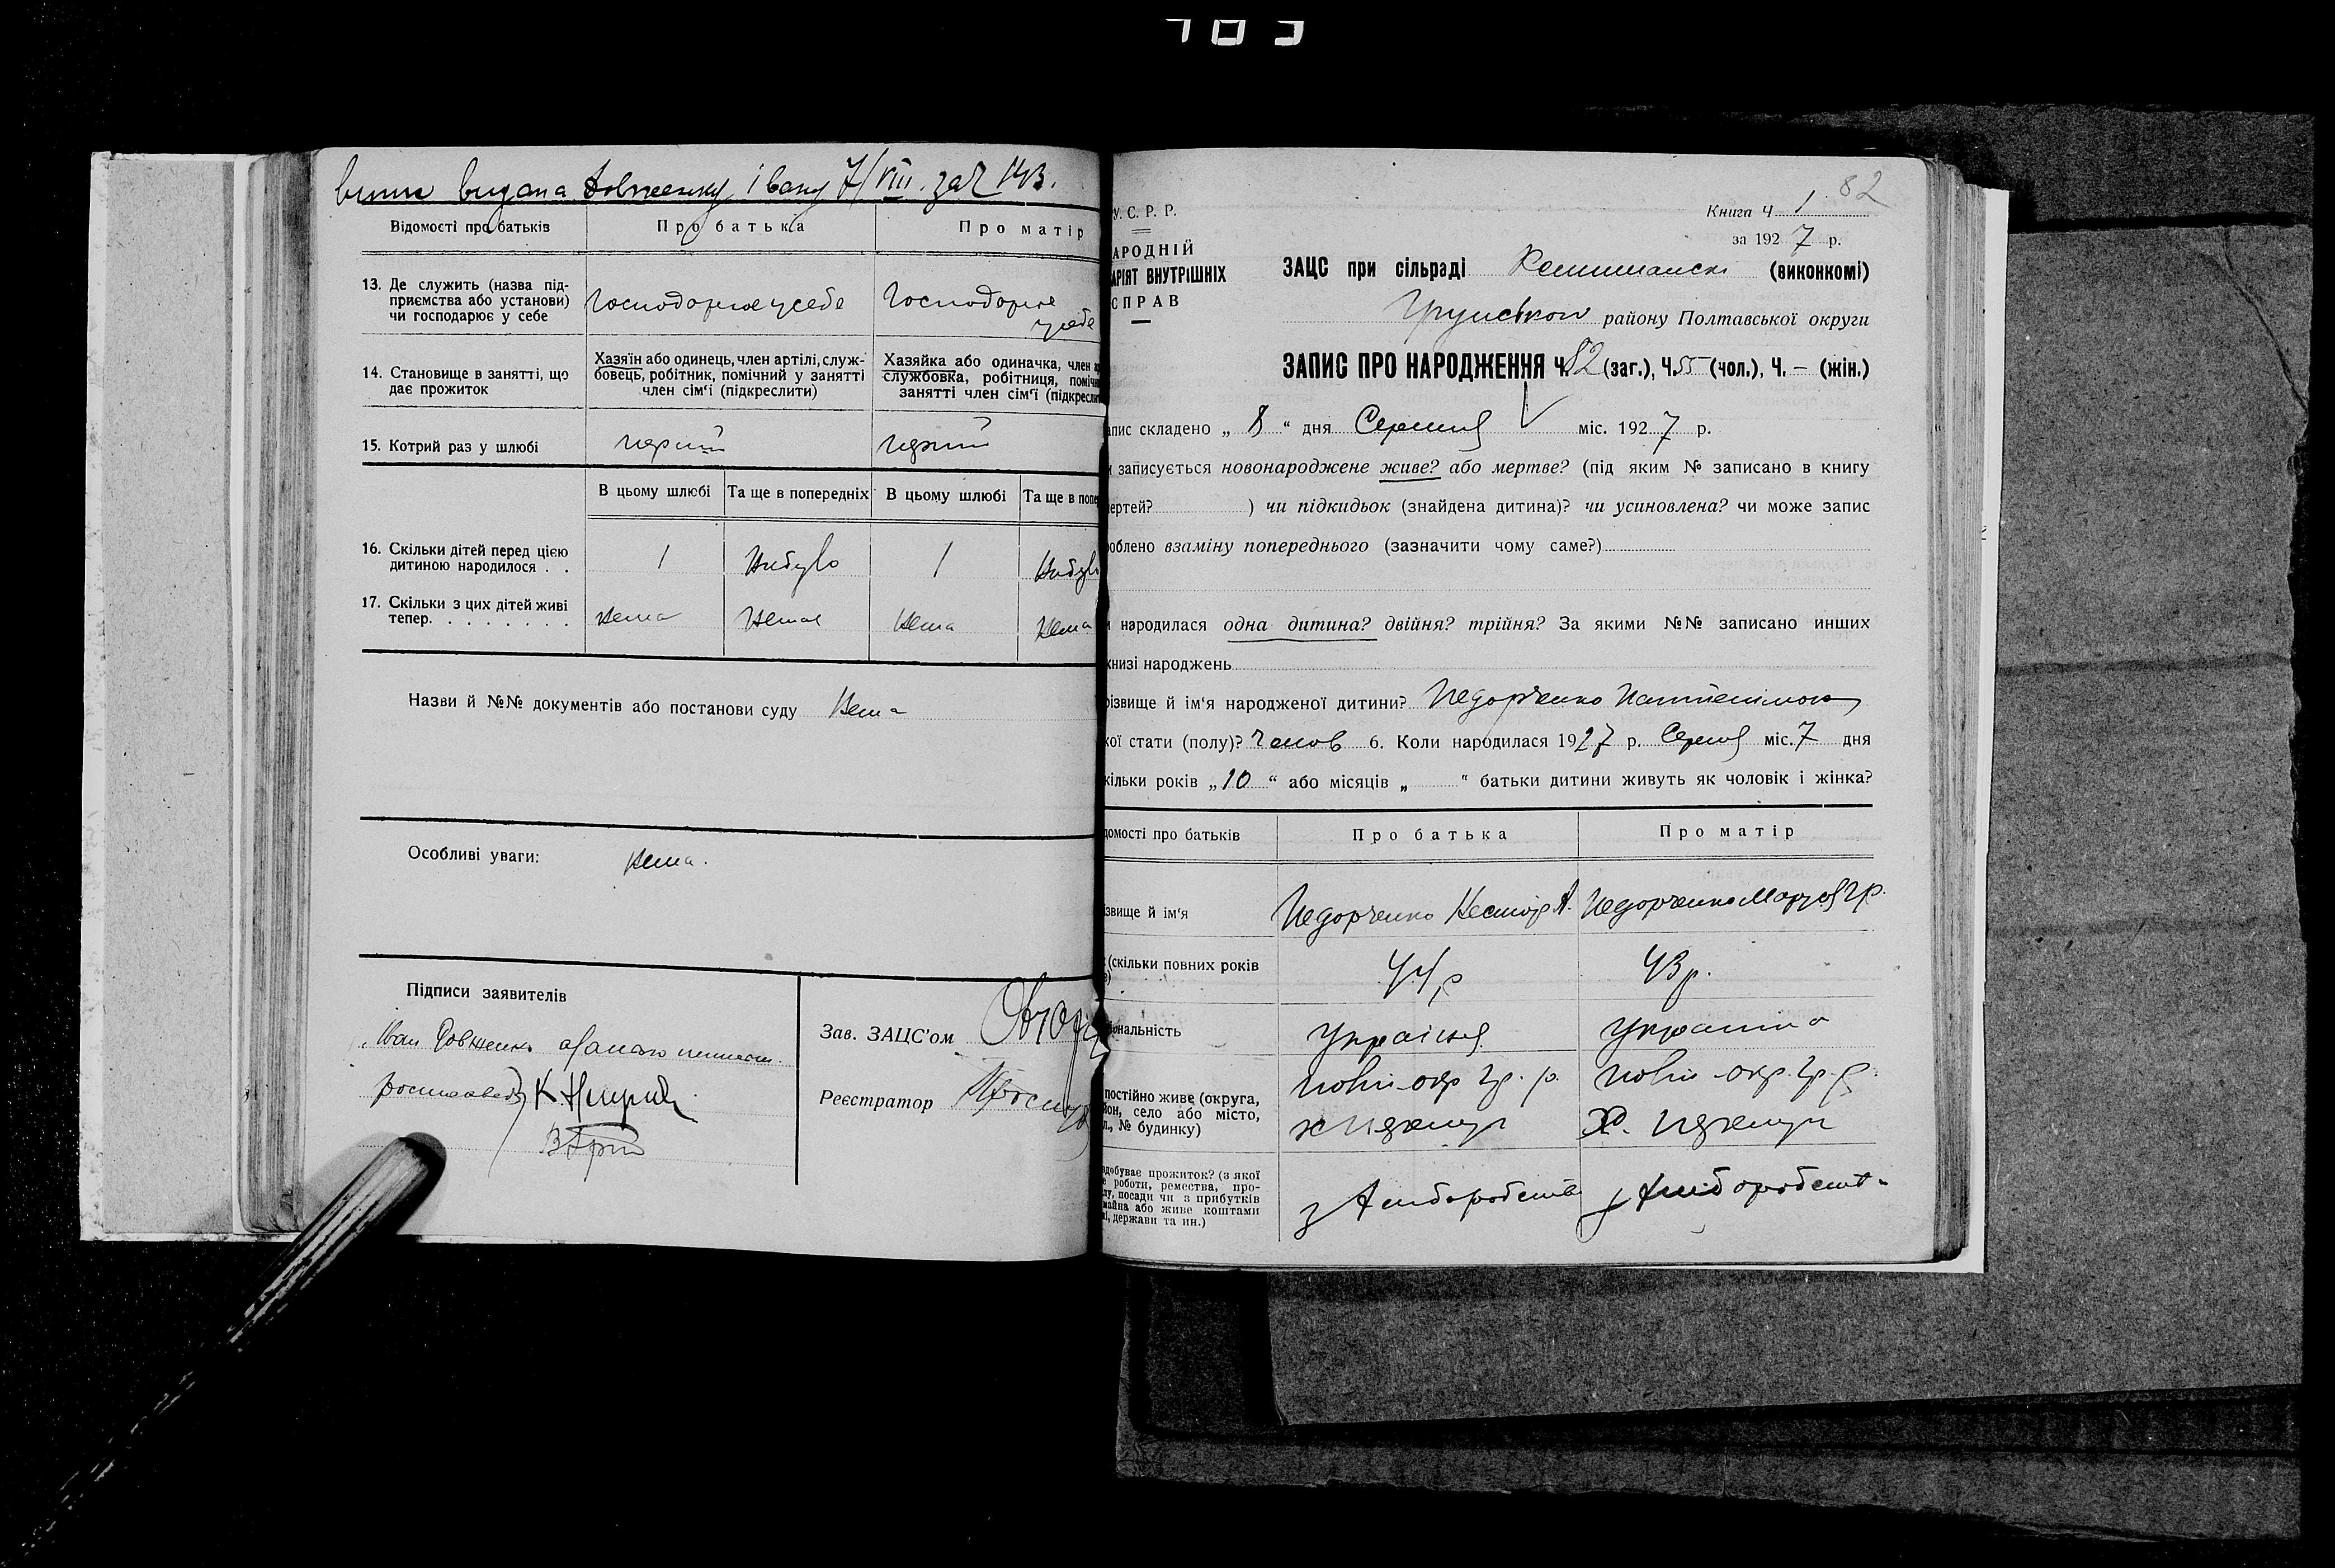 видана Довженку Івану 7/VIII. за № 143.
Відомості про батьків
Про батька
Про матір
13. Де служить (назва під-
приємства або установи)
чи господарює у себе
Господарює у себе
Господарює
у себе
14. Становище в занятті, що
дає прожиток
Хазяїн або одинець, член артілі, служ-
бовець, робітник, помічний у занятті
член сім'ї (підкреслити)
Хазяйка або одиначка, член
службовка, робітниця,
занятті член сім'ї
15. Котрий раз у шлюбі
перший
перший
В цьому шлюбі
Та ще в попередніх
В цьому шлюбі
Та ще в
16. Скільки дітей перед цією
дитиною народилося . .
1
Небуло
1
Небуло
17. Скільки з цих дітей живі
тепер. . . . . . . .
Нема
Немає
Нема
Нема
Назви й №№ документів або постанови суду Нема
Особливі уваги: Нема.
Підписи заявителів
Іван Довженко
К.
Зав. ЗАЦС'ом
Реєстратор
82
У. С. Р. Р.
АРОДНІЙ
АРІЯТ ВНУТРІШНІХ
СПРАВ
Книга Ч. 1
за 1927 р.
ЗАЦС при сільраді (виконкомі)
Грунськом району Полтавської округи
ЗАПИС ПРО НАРОДЖЕННЯ Ч. 82 (заг.), Ч. 55 (чол.), Ч. – (жін.)
апис складено „ 8 “ дня Серпня міс. 1927 р.
записується новонароджене живе? або мертве? (під яким № записано в книгу
мертей? ) чи підкидьок (знайдена дитина)? чи усиновлена? чи може запис
роблено взаміну попереднього (зазначити чому саме?)
народилася одна дитина? двійня? трійня? За якими №№ записано инших
книзі народжень
різвище й ім'я народженої дитини? Педорченко Пантелімон
кої стати (полу)? Чолов 6. Коли народилася 1927 р. Серпня міс. 7 дня
кільки років „10“ або місяців „ “ батьки дитини живуть як чоловік і жінка?
домості про батьків
Про батька
Про матір
звище й ім'я
Педорченко Нестор А.
Педорченко Маруся Гр.
(скільки повних років
44 р
43 р.
ональність
Українця
Українка
постійно живе (округа,
йон, село або місто,
л., № будинку)
Полт-окр Гр. р.
Полт-окр. Гр. р.
х
х.
здобуває прожиток? (з якої
роботи, ремества, про-
лу, посади чи з прибутків
майна або живе коштами
держави та ин.)
з хліборобства
з хліборобств